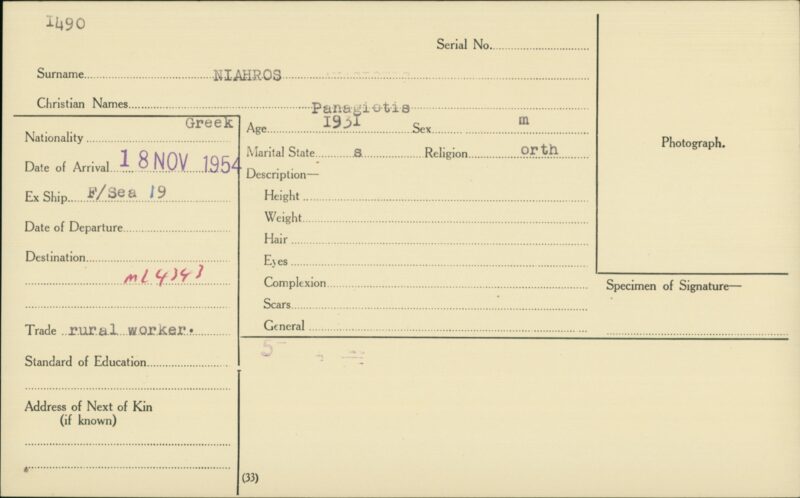 1490
Serial No.
Surname NIAHROS
Christian Names Panagiotis
Nationality Greek
Date of Arrival 18 NOV 1954
Ex Ship F/Sea 19
Date of Departure
Destination
ML 4343
Trade rural worker.
Standard of Education
Address of Next of Kin
(if known)
Age 1931 Sex m
Marital State s Religion orth
Description—
Height
Weight
Hair
Eyes
Complexion
Scars
General
5
(33)
Photograph.
Specimen of Signature—